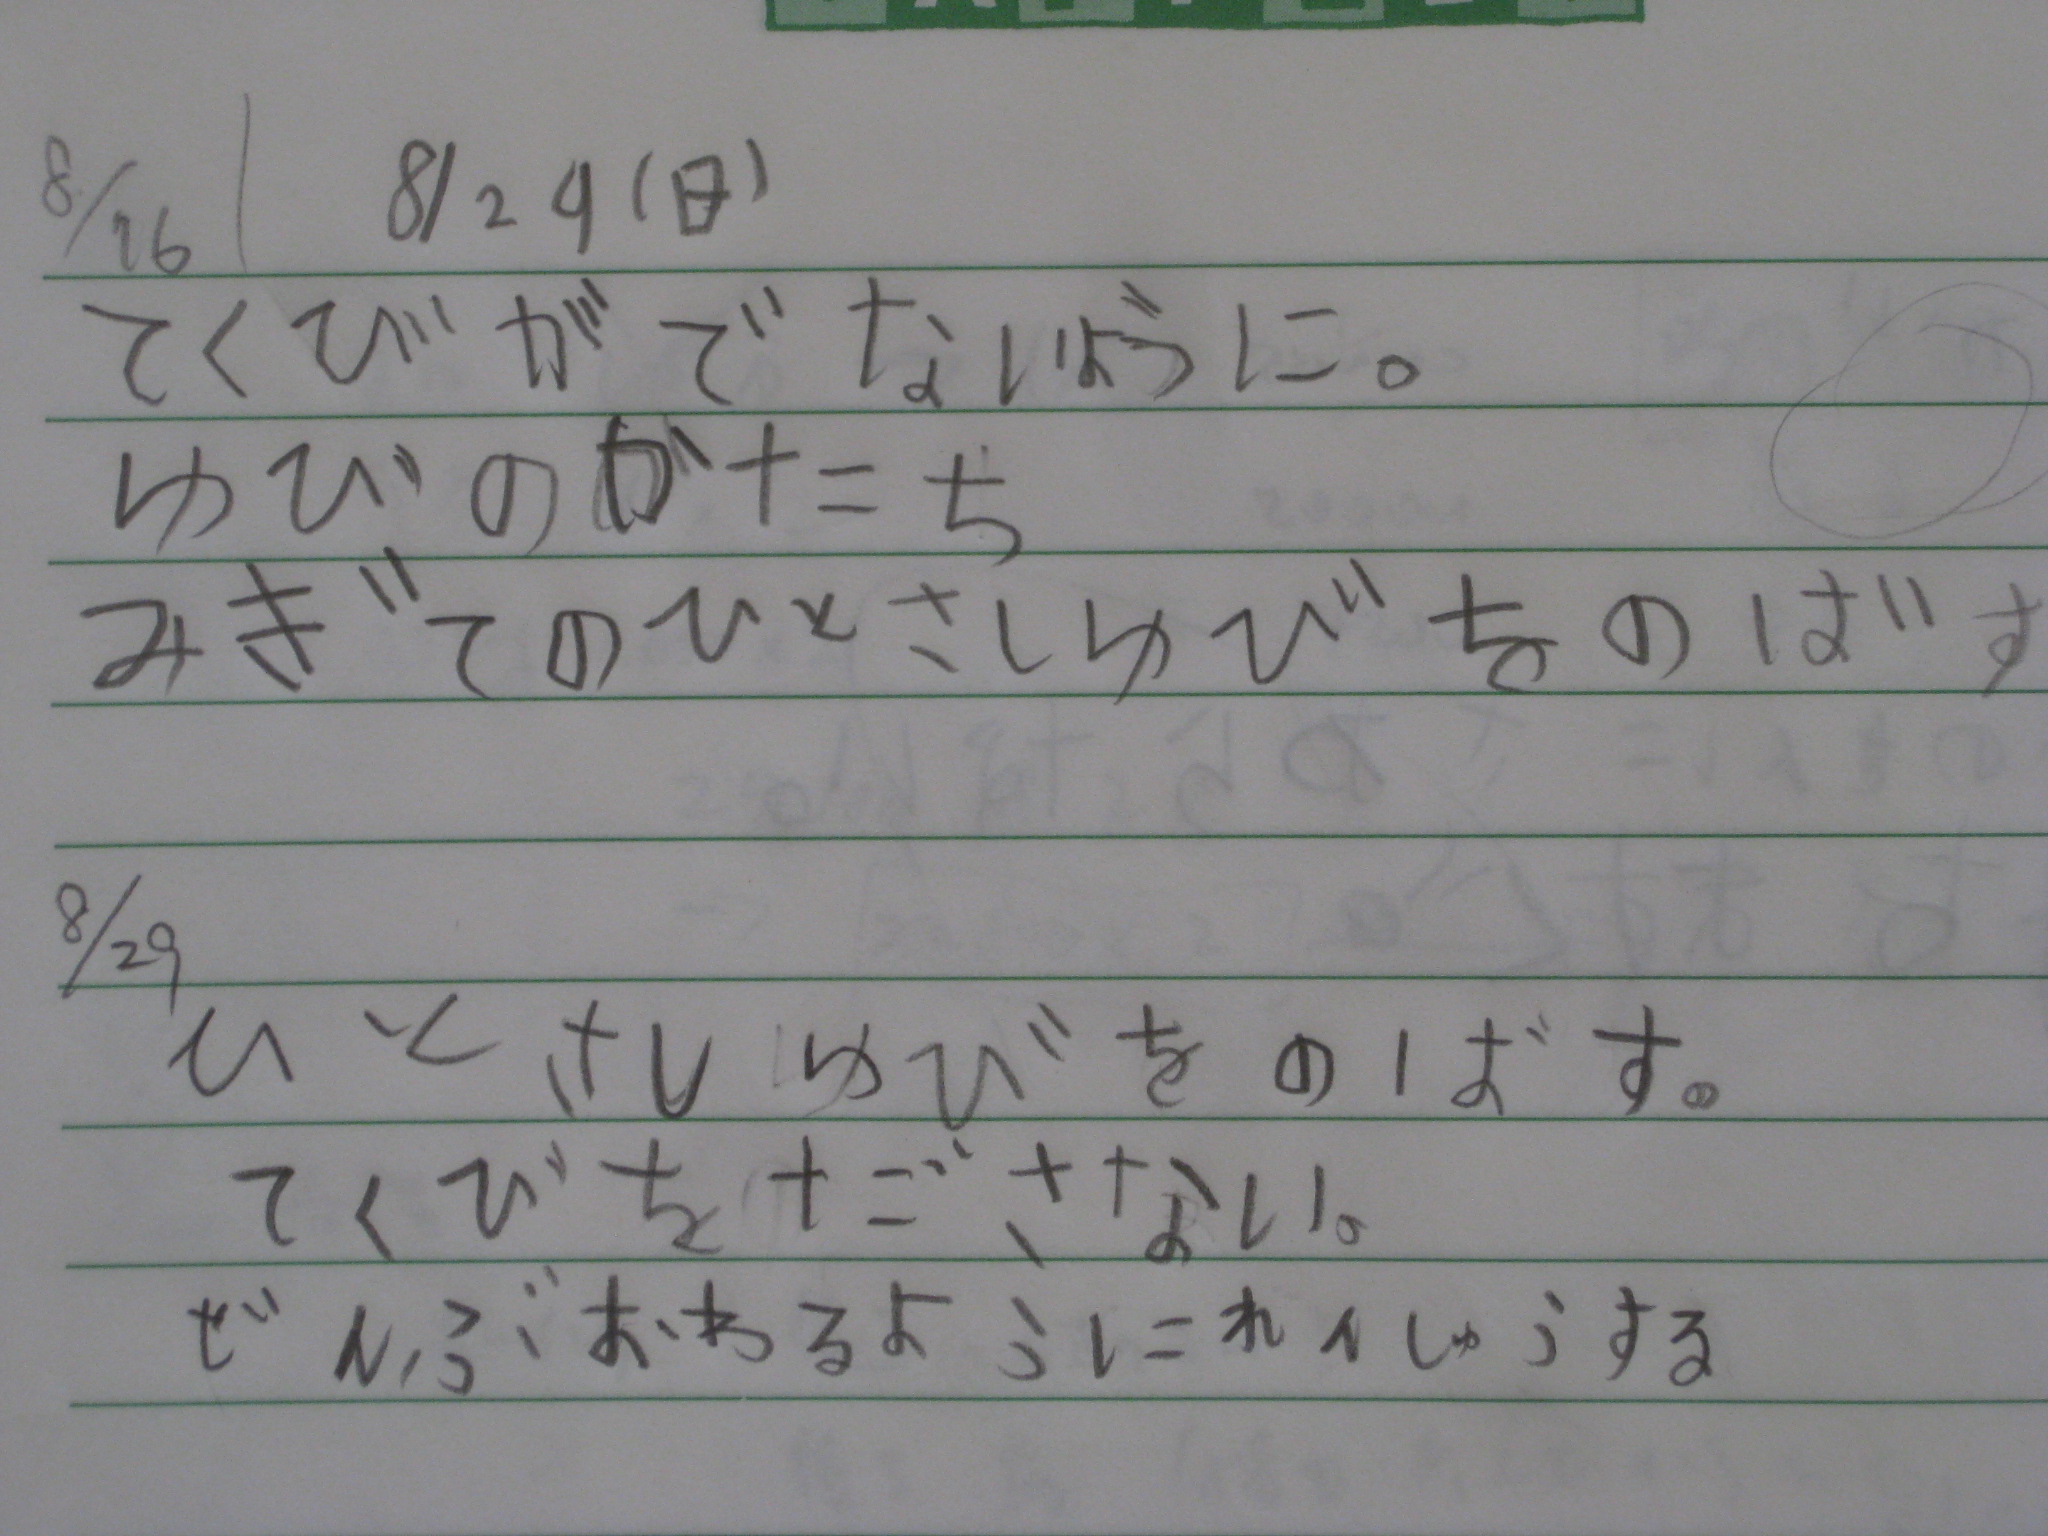 8/16 8/29(日)
てくびがでないように。
ゆびのかたち
みぎてのひとさしゆびをのばす
8/29
ひとさしゆびをのばす。
てくびをださない。
ぜんぶおわるようにれんしゅうする